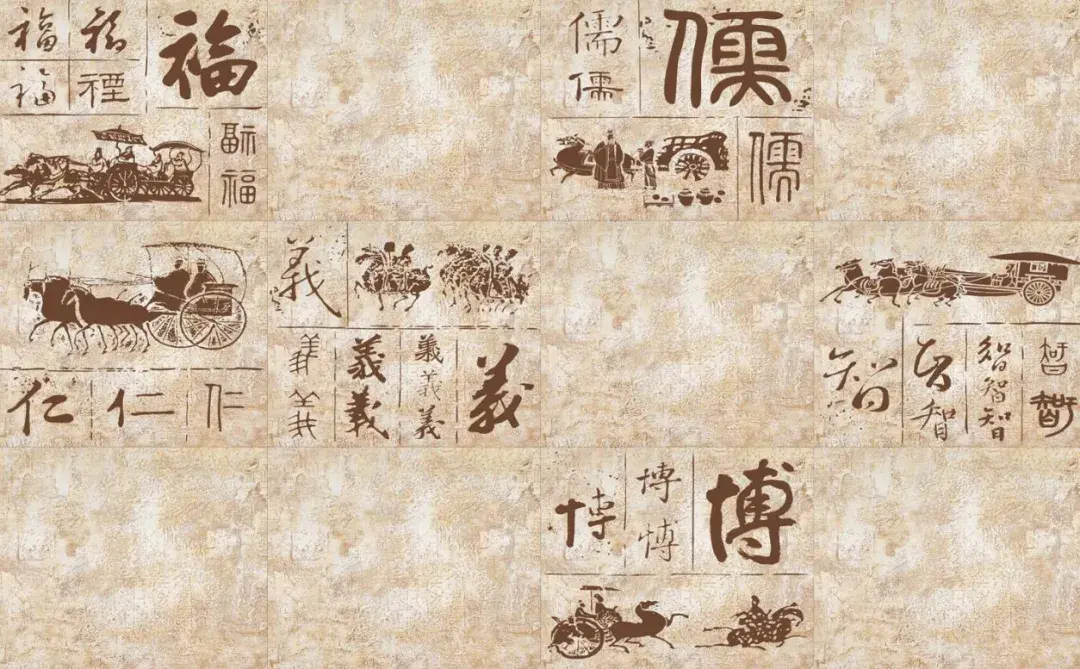 福 福 福
福 禋
副 福
儒 儒
儒
儒
仁 仁 仁
義
義 義 義
義 義 義
義
智 智 智
智 智
智 智
博 博 博
博